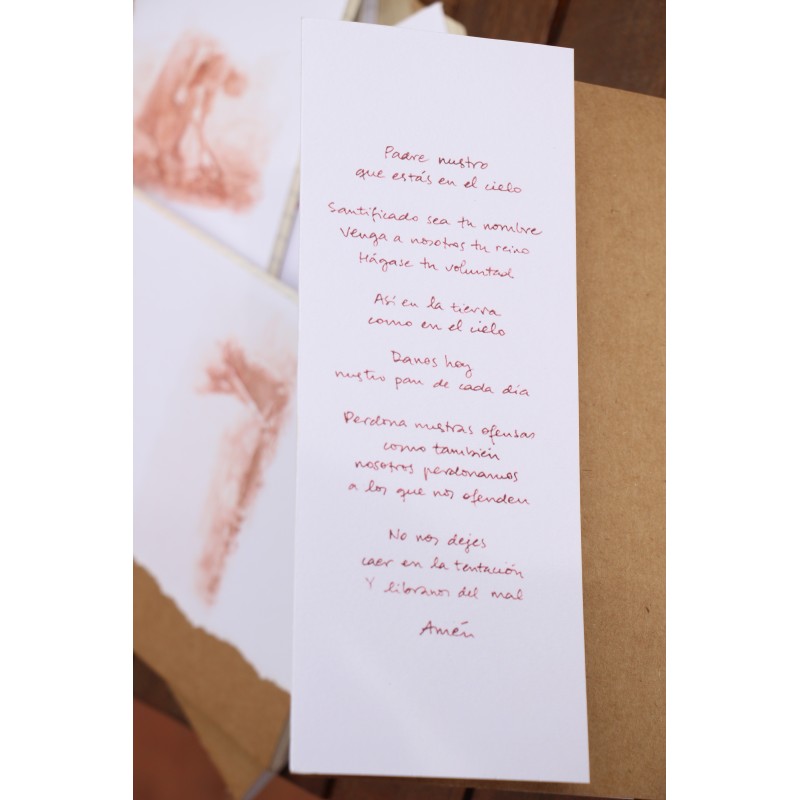 Padre nuestro
que estás en el cielo
Santificado sea tu nombre
Venga a nosotros tu reino
Hágase tu voluntad
Así en la tierra
como en el cielo
Danos hoy
nuestro pan de cada día
Perdona nuestras ofensas
como también
nosotros perdonamos
a los que nos ofenden
No nos dejes
caer en la tentación
Y líbranos del mal
Amén